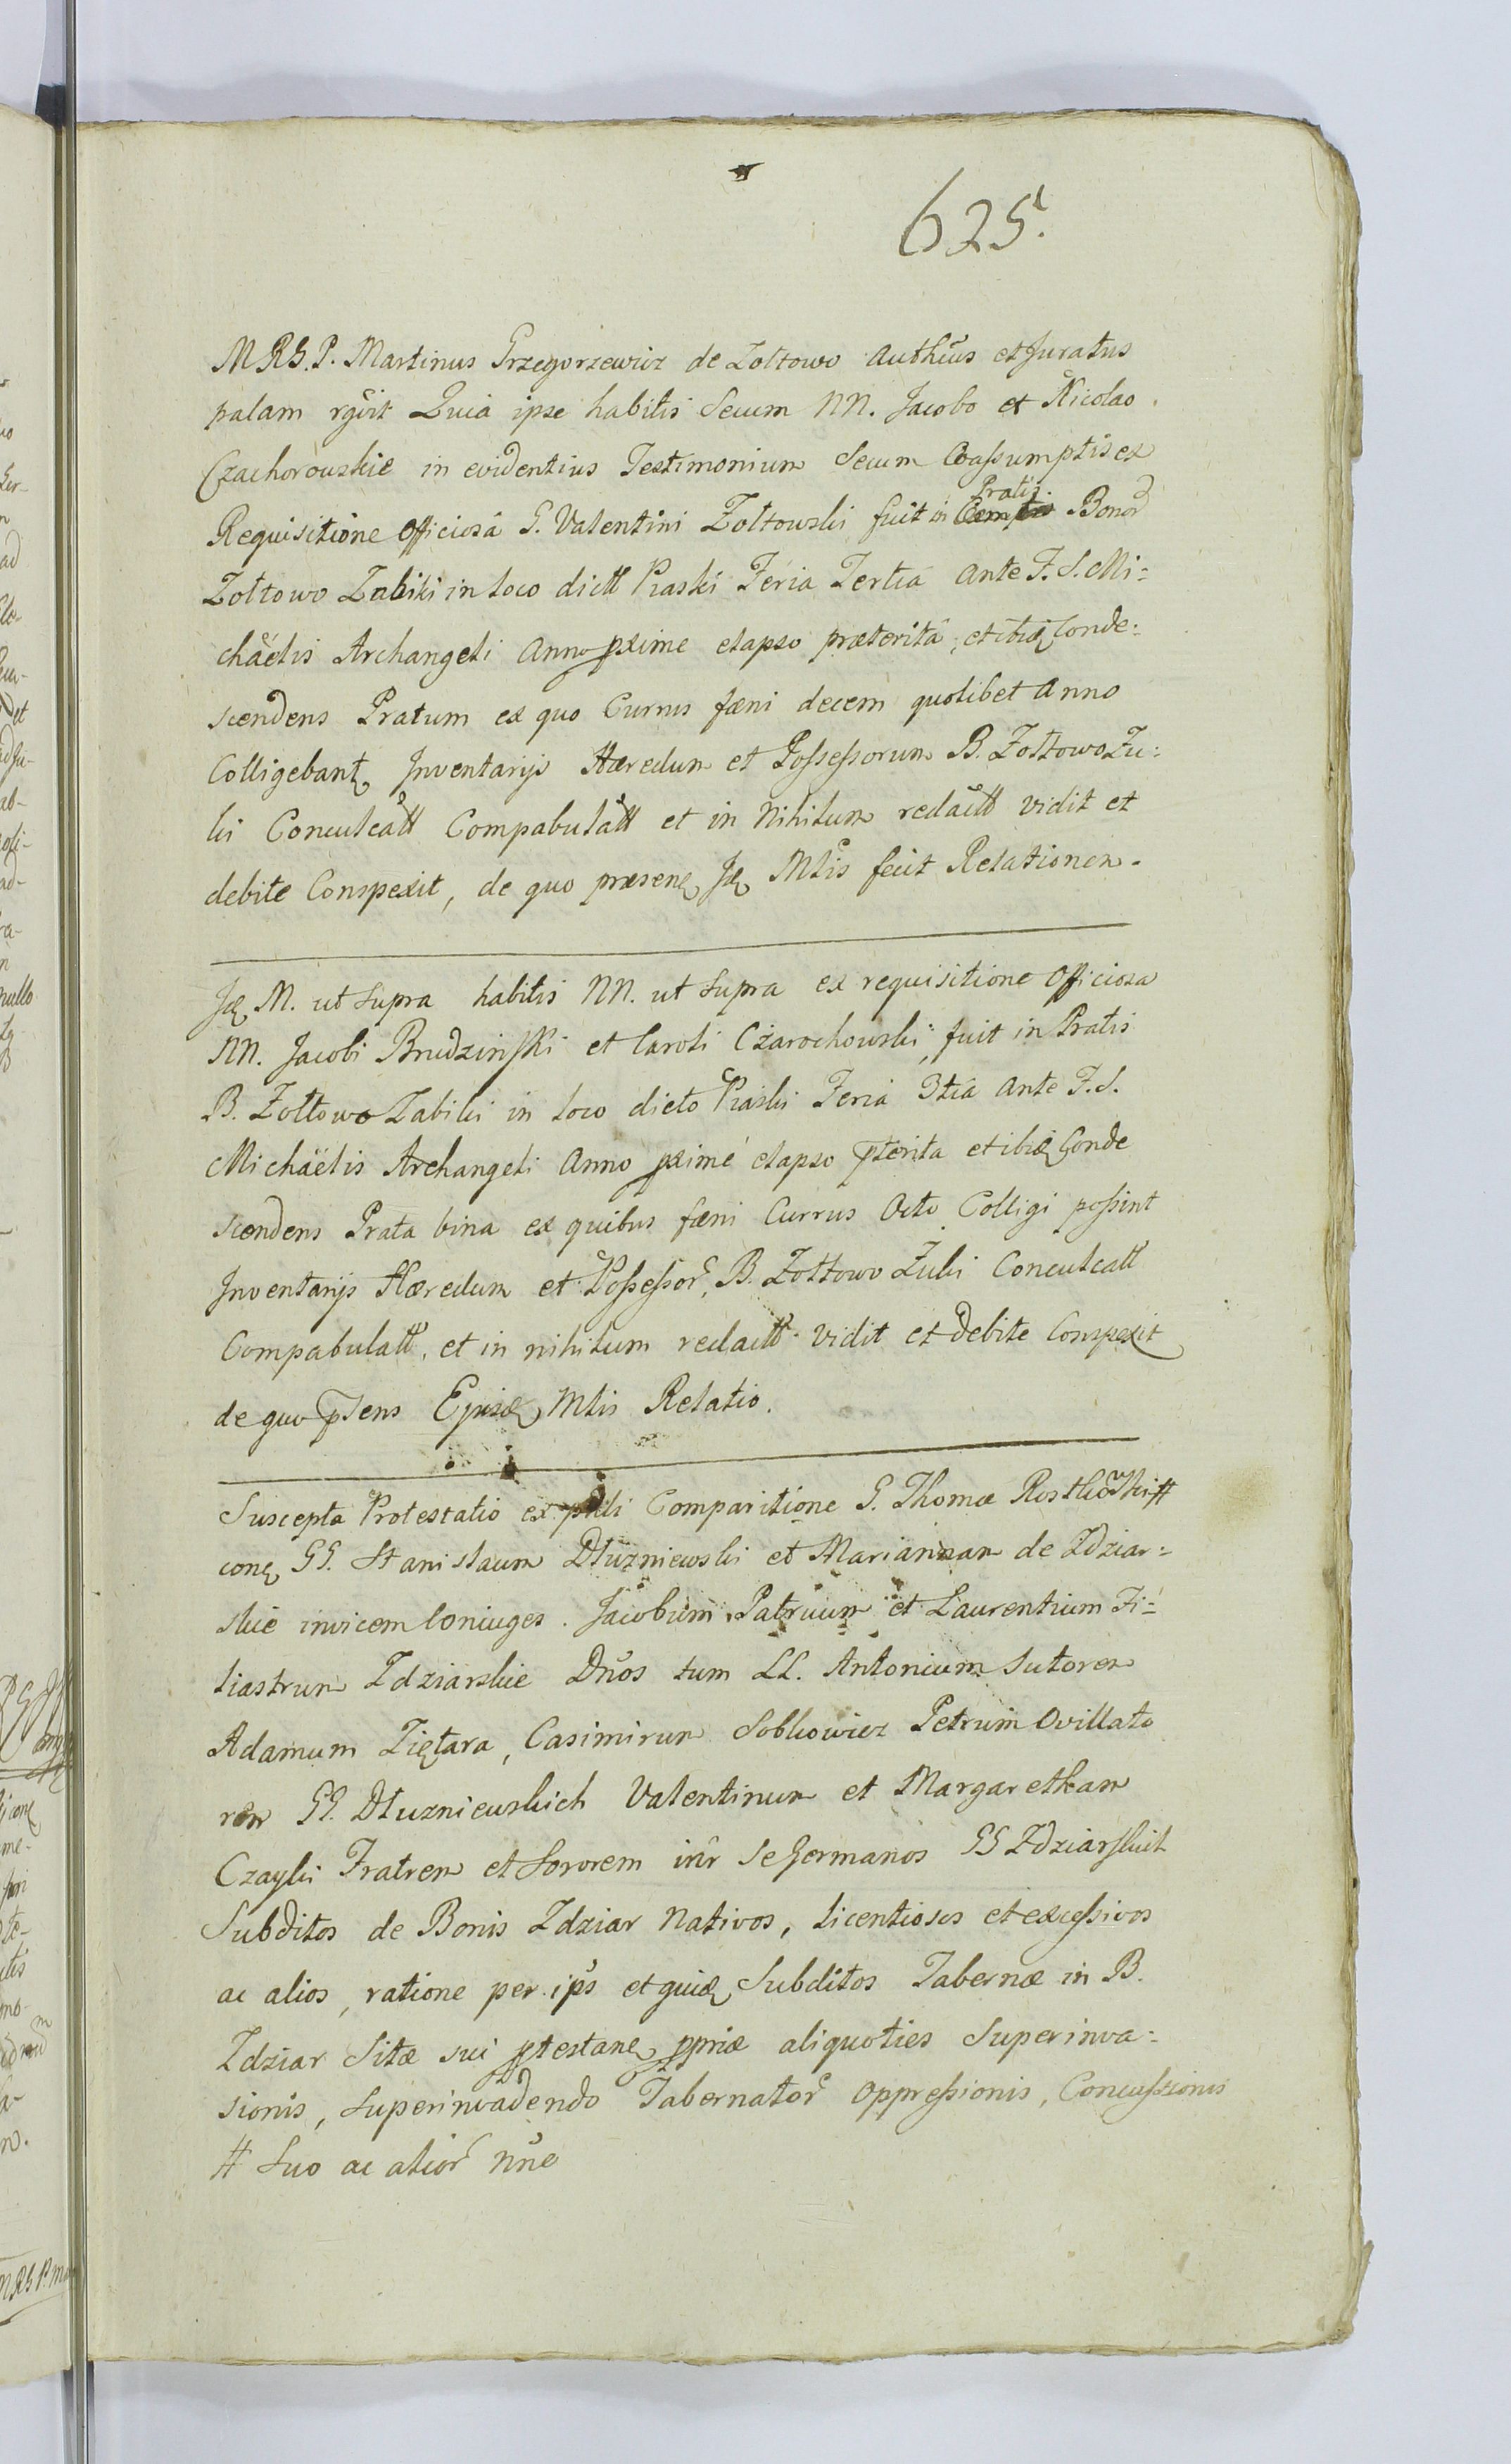 625.
MRG.P. Martinus Grzegorzewicz de Zoltowo Authcus et Juratus
palam rgvit Quia ipse habitis Secum NN. Jacobo et Nicolao
Czachorouskie in evidentius Testimonium Secum Coassumptis ex
Requisitione Officiosa G. Valentini Zoltowski fuit in Pratis Bonor
Zoltowo Zabiki in loco dictt Piaski Feria Tertia ante F. S. Mi=
chaëlis Archangeli Anno pxime elapso præterita, et ibiq Conde=
scendens Pratum ex quo Currus fæni decem quolibet Anno
Colligebant Inventarijs Hæredum et Possessorum B. Zoltowo Zu=
ki Conculcatt Compabulatt et in Nihilum redactt vidit et
debite Conspexit, de quo præsens Jq Mtis fecit Relationem.
Jq M. ut supra habitis NN. ut supra ex requisitione Officiosa
NN. Jacobi Brudzinski et Caroli Czarochowski, fuit in Pratis
B. Zoltowo Zabiki in loco dicto Piaski Feria 3tia ante F. S.
Michaëlis Archangeli Anno pxime elapso pterita et ibiq Conde
scendens Prata bina ex quibus fæni Currus Octo Colligi possint
Inventarijs Hæredum et Possessor, B. Zoltowo Zuki Conculcatt
Compabulatt, et in nihilum redactt vidit et debite Conspexit
de quo psens Ejusq Mtis Relatio.
Suscepta Protestatio ex psli Comparitione G. Thomæ Rostkowski #
conq GG. Stanislaum Dluzniewski et Mariannam de Zdziar=
skie invicem Coniuges. Jacobum Patruum et Laurentium Fi=
liastrum Zdziarskie Dnos tum LL. Antonium Sutorem
Adamum Ziętara, Casimirum Sobkowicz Petrum Ovillato
rem GG. Dluzniewskich Valentinum et Margaretham
Czayki Fratrem et Sororem intr se Germanos GG Zdziarskich
Subditos de Bonis Zdziar Nativos, licentiosos et excessivos
ac alios, ratione per ips et quiq Subditos Tabernæ in B.
Zdziar Sitæ sui ptestanq ppriæ aliquoties Superinva=
sionis, Superinvadendo Tabernator Oppressionis, Concussionis
# Suo ac alior nne